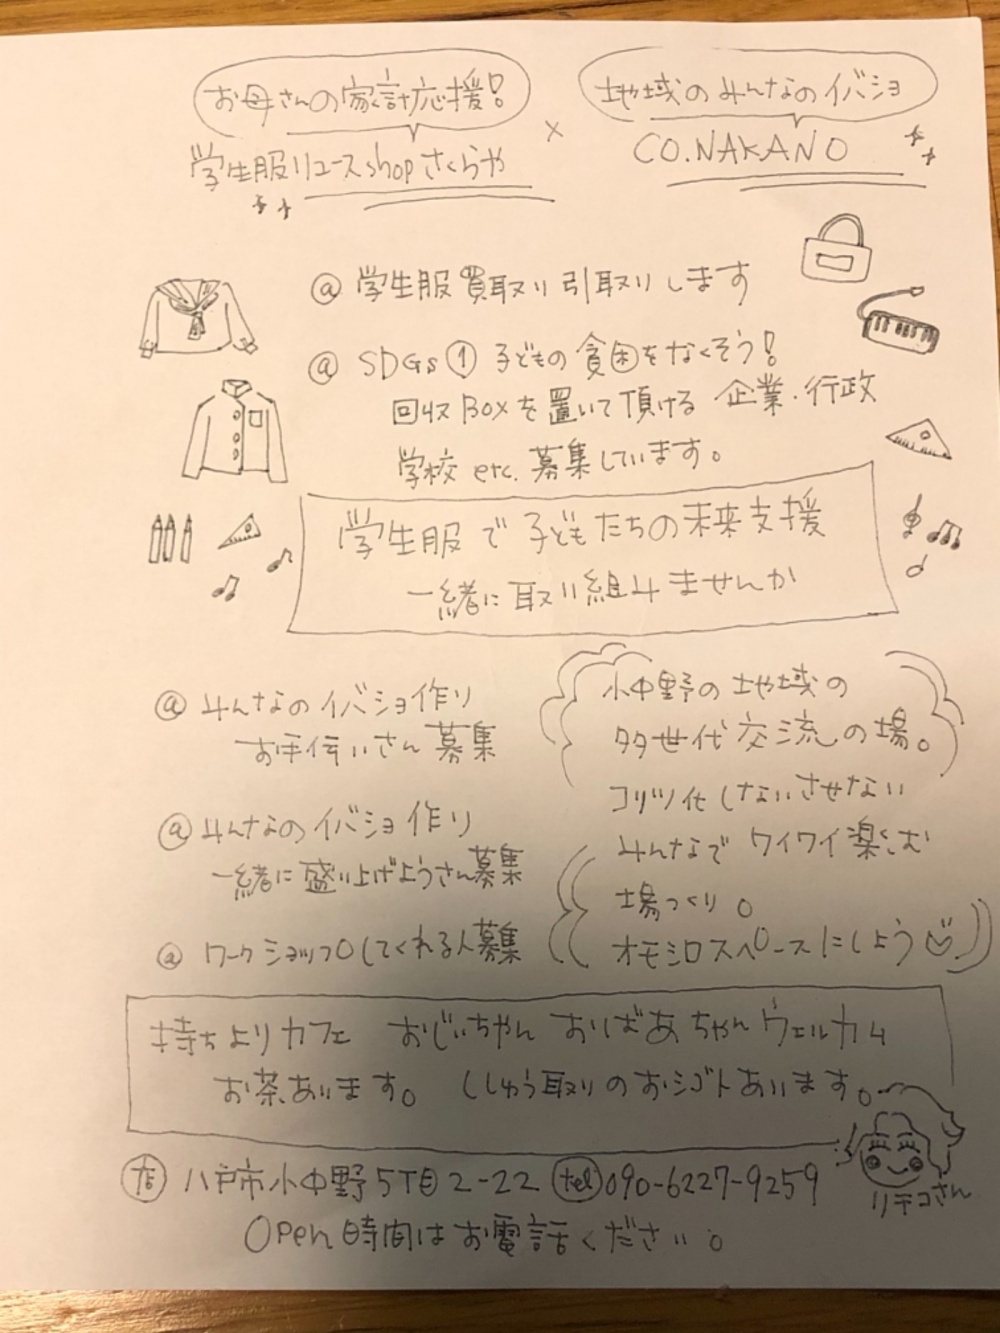 お母さんの家計応援!
学生服リユースshopさくらや
×
地域のみんなのイバショ
CO.NAKANO
@ 学生服買取り引取りします
@ SDGs① 子どもの貧困をなくそう!
回収BOXを置いて頂ける 企業・行政
学校 etc. 募集しています。
学生服で子どもたちの未来支援
一緒に取り組みませんか
@ みんなのイバショ作り
お手伝いさん募集
@ みんなのイバショ作り
一緒に盛り上げようさん募集
@ ワークショップしてくれる人募集
小中野の地域の
多世代交流の場。
コリツ化しないさせない
みんなでワイワイ楽しむ
場づくり。
オモシロスペースにしよう
持ちよりカフェ おじいちゃん おばあちゃんウェルカム
お茶あります。 ししゅう取りのおシゴトあります。
店 八戸市小中野5丁目2-22 tel 090-6227-9259
Open時間はお電話ください。
リテコさん